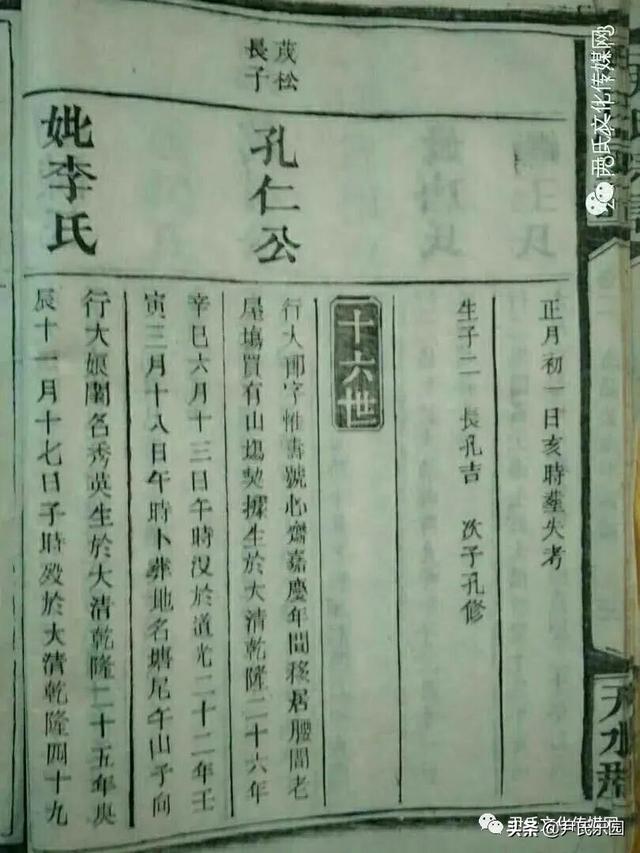 正月初一日亥時塟失考
生子二 長孔吉 次子孔修
十六世
茂松
長子
孔仁公
行人郎字惟壽號心齋嘉慶年間移居腰間老
屋塲買有山塲契據生於大清乾隆二十六年
辛巳六月十三日午時没於道光二十二年壬
寅三月十八日午時卜葬地名塘尾午山子向
妣李氏
行大娘閨名秀英生於大清乾隆二十五年庚
辰十一月十七日子時殁於大清乾隆四十九
天水郡
两氏文化传媒网
尹氏文化传媒网
头条 @尹氏乐园